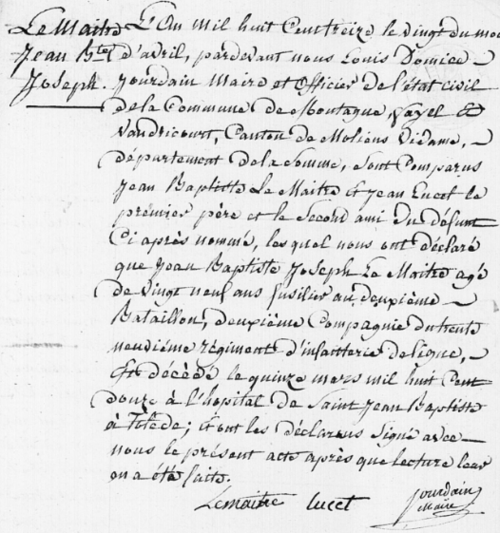 Le Maitre
Jean Bte
Joseph.
L'An mil huit Cent treize le vingt du mois
d'avril, pardevant nous Louis Domice
Jourdain Maire et officier de l'état civil
de la Commune de Montagne, fayel &
Vandricourt, Canton de Moliens Vidame,
département de la Somme, sont Comparus
Jean Baptiste Le Maitre et Jean Lucet le
prémier père et le Second ami du défunt
Ci après nommé, les quel nous ont déclaré
que Jean Baptiste Joseph Le Maitre agé
de vingt neuf ans fusilier au deuxième
Bataillon, deuxième Compagnie du trente
neudième régiment d'infatterie de ligne,
Est décédé le quinze mars mil huit Cent
douze à l'hopital de Saint Jean Baptiste
à Tolède; et ont les déclarans signé avec
nous le présent acte après que lecture leur
en a été faite.
Lemaitre lucet jourdain
maire